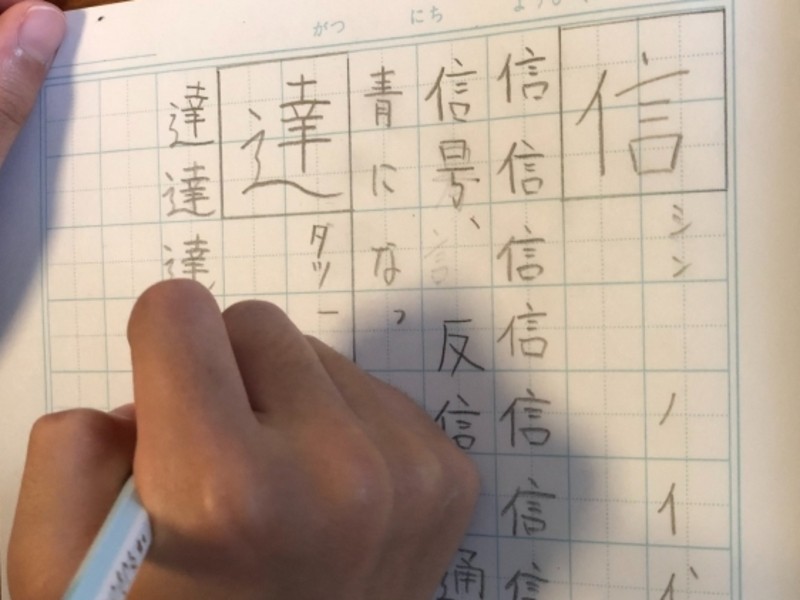 がつ
にち
信
シン
ノ
イ
信信信信信信信
信号、
反信
通
青になっ
達
タツ
一
達達達